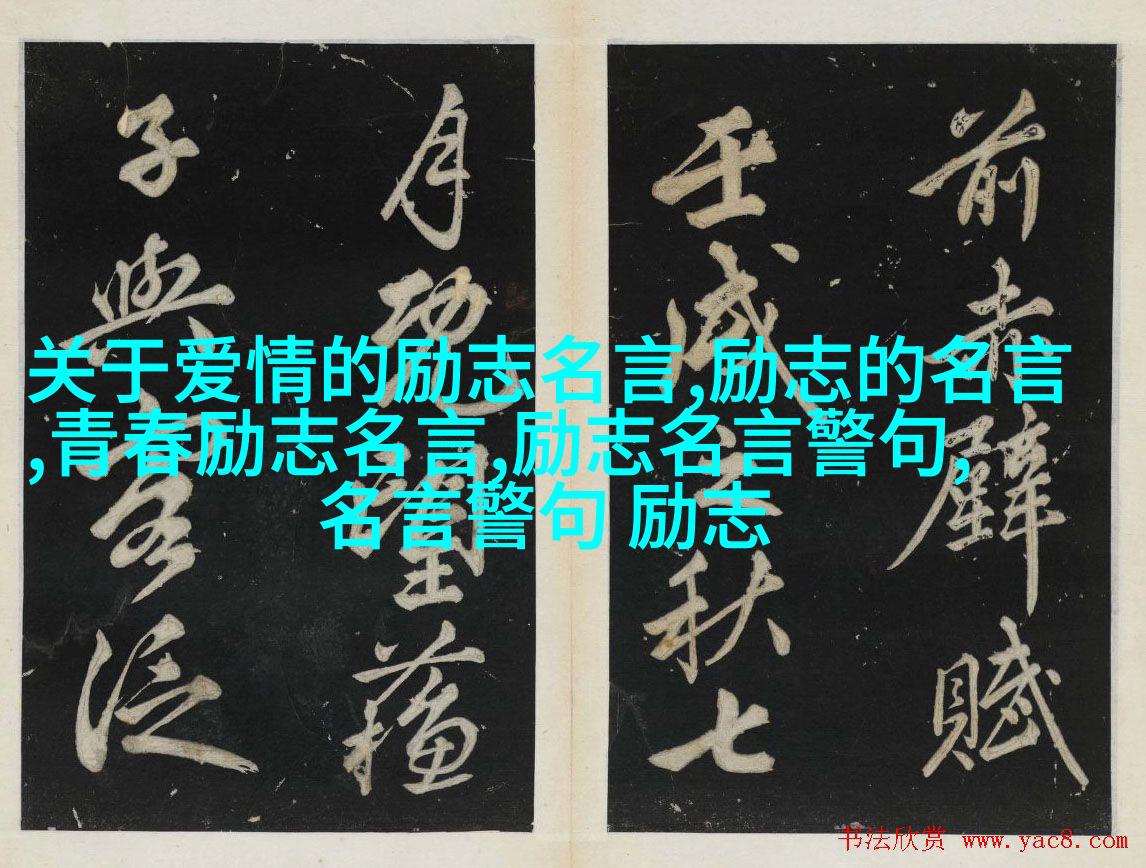 前赤壁賦
壬戌之秋七
月既望蘇
子與客泛
关于爱情的励志名言,励志的名言
,青春励志名言,励志名言警句,
名言警句 励志
书法欣赏 www.yac8.com